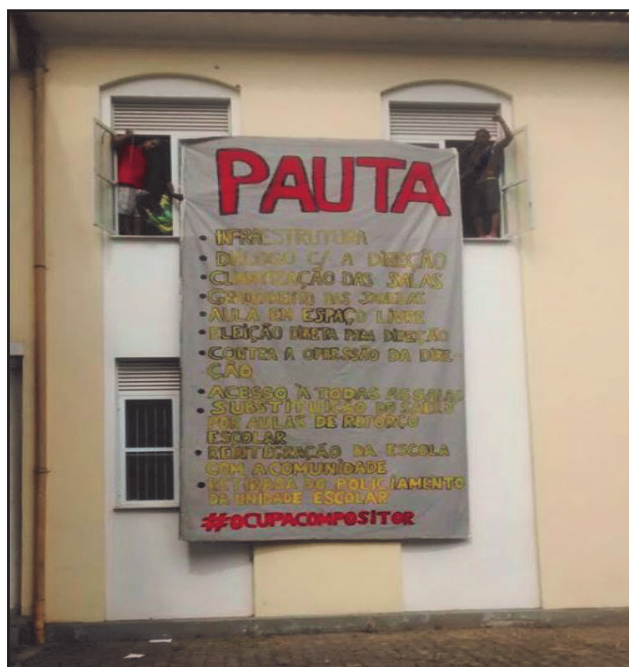 PAUTA
• INFRAESTRUTURA
• DIÁLOGO C/ A DIREÇÃO
• CLIMATIZAÇÃO DAS SALAS
DAS
• AULA EM ESPAÇO LIVRE
• ELEIÇÃO DIRETA PARA DIREÇÃO
• CONTRA A OPRESSÃO DA DIRE-
ÇÃO
• ACESSO À TODAS AS SALAS
• SUBSTITUIÇÃO DO
POR AULAS DE REFORÇO
ESCOLAR
• REINTEGRAÇÃO DA ESCOLA
COM A COMUNIDADE
• RETIRADA DO POLICIAMENTO
DA UNIDADE ESCOLAR
#OCUPACOMPOSITOR